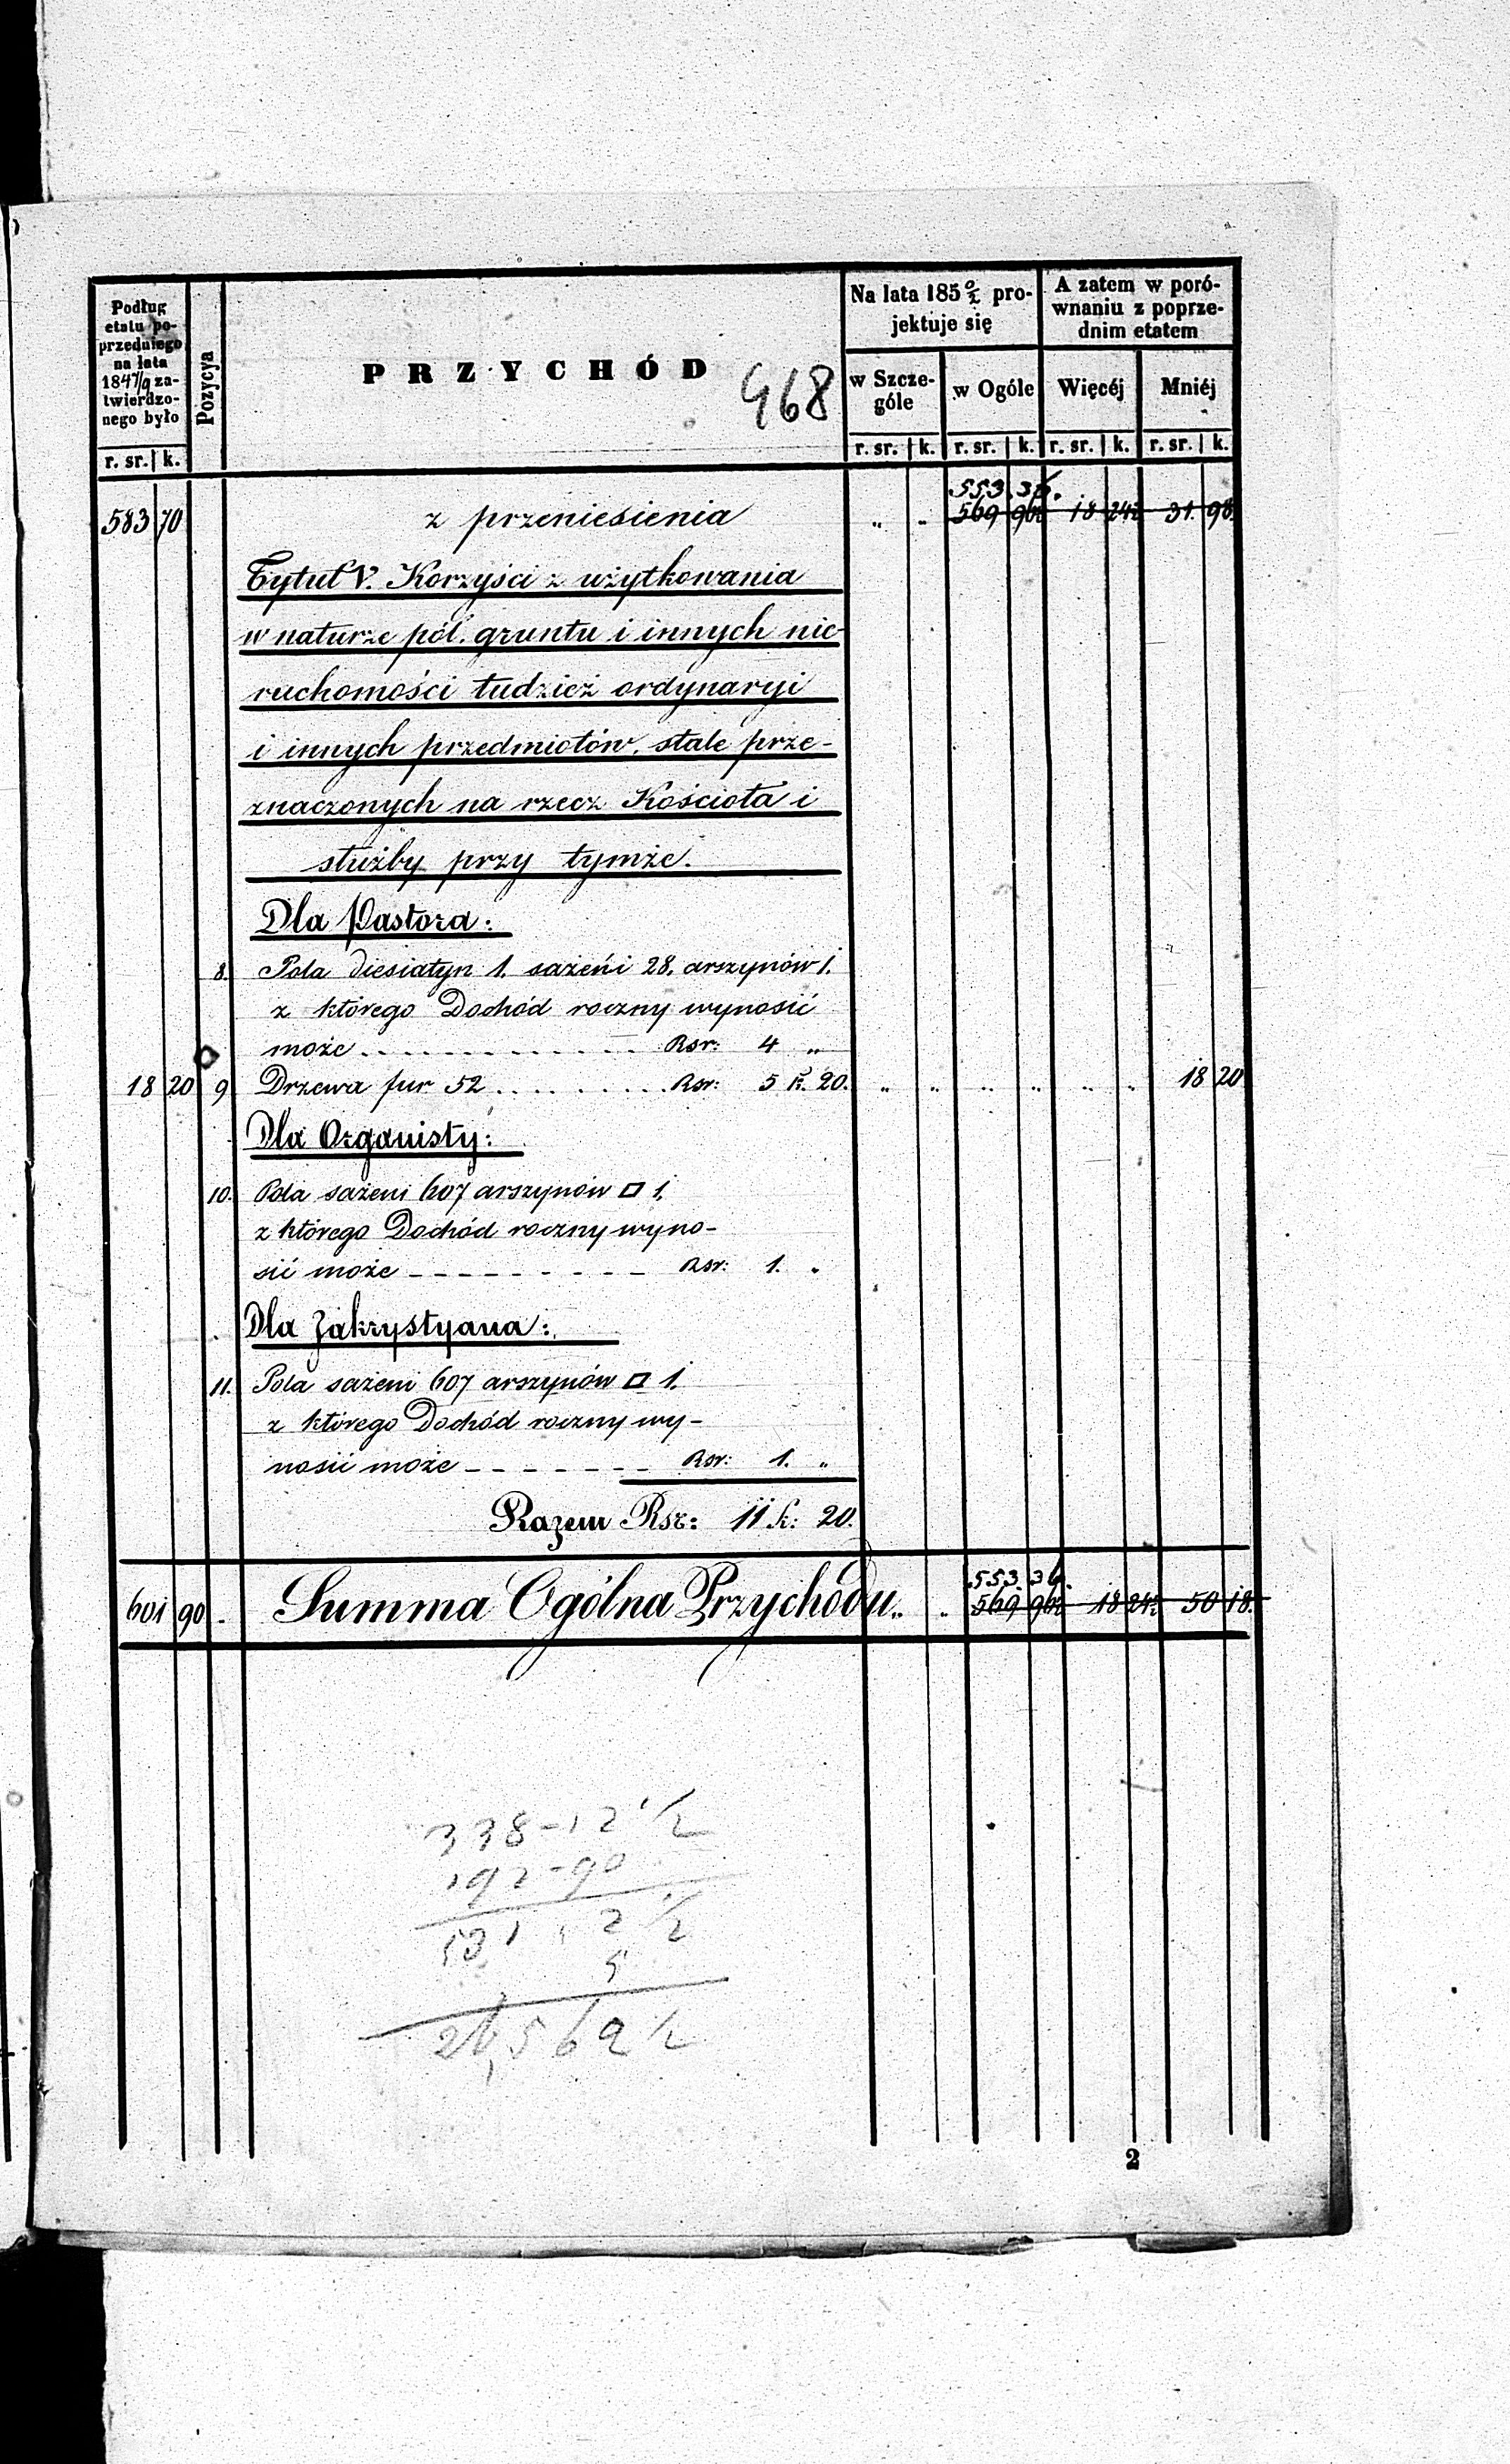 Podług
etatu po-
przedniego
na lata
1847/9 za-
twierdzo-
nego było
r. sr. k.
Pozycya
PRZYCHÓD
468
Na lata 185 0/2 pro-
jektuje się
w Szcze-
góle
r. sr. k.
w Ogóle
r. sr. k.
A zatem w poró-
wnaniu z poprze-
dnim etatem
Więcéj
r. sr. k.
Mniéj
r. sr. k.
553. 36.
583 70 z przeniesienia „ „ 569 96½ 18 24½ 31. 98.
Tytuł V. Korzyści z użytkowania
w naturze pól. gruntu i innych nie-
ruchomości tudzież ordynaryi
i innych przedmiotów, stale prze-
znaczonych na rzecz Kościoła i
służby przy tymże.
Dla Pastora:
8. Pola diesiatyn 1. sażeńi 28. arszynów 1.
z którego Dochód roczny wynosić
może . . . . . . . . . . . . . Rsr: 4 „
18 20 9 Drzewa fur 52 . . . . . . . . Rsr: 5 k. 20. „ „ „ „ „ „ 18 20
Dla Organisty:
10. Pola sażeni 607 arszynów □ 1.
z którego Dochód roczny wyno-
sić może - - - - - - - - - Rsr: 1. „
Dla Zakrystyana:
11. Pola sażeni 607 arszynów □ 1.
z którego Dochód roczny wy-
nosić może - - - - - - - - Rsr: 1. „
Razem Rsr: 11 k: 20.
553. 36.
601 90 Summa Ogólna Przychodu „ „ 569 96½ 18 24½ 50 18.
338-12 1/2
192-90
531 2 1/2
5